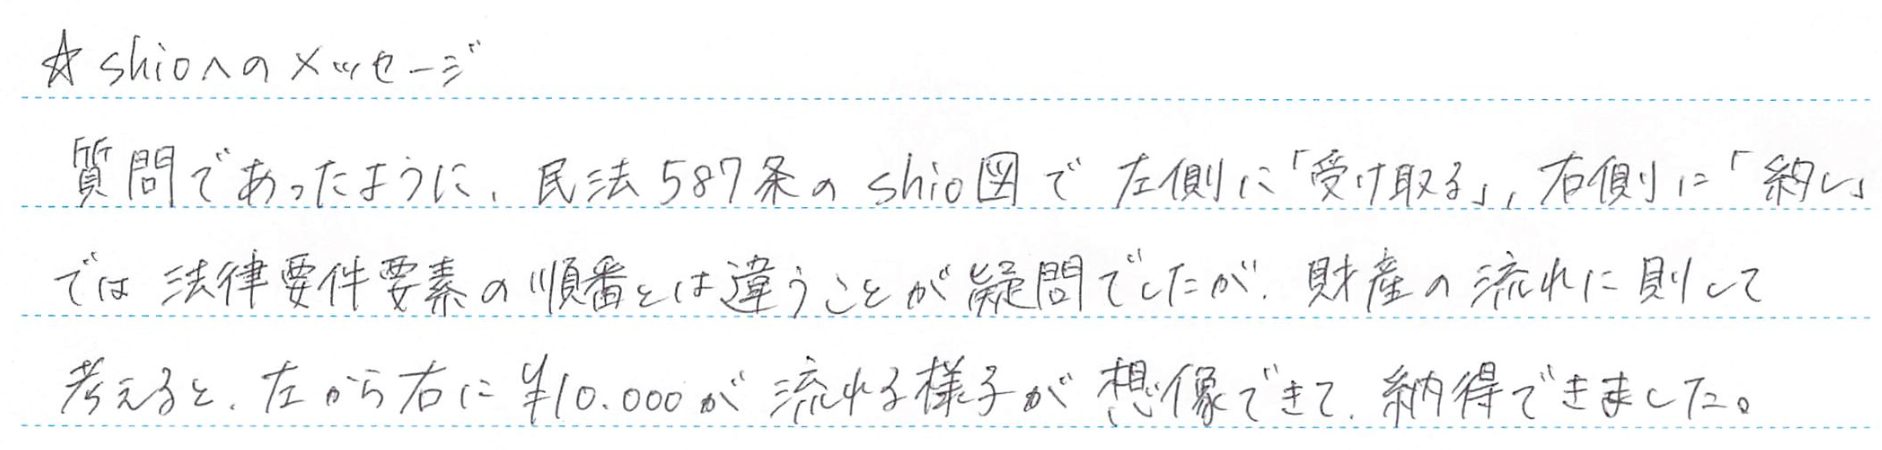 ☆shioへのメッセージ
質問であったように、民法587条のshio図で左側に「受け取る」,右側に「約し」
では法律要件要素の順番とは違うことが疑問でしたが、財産の流れに則して
考えると、左から右に¥10.000が流れる様子が想像できて、納得できました。